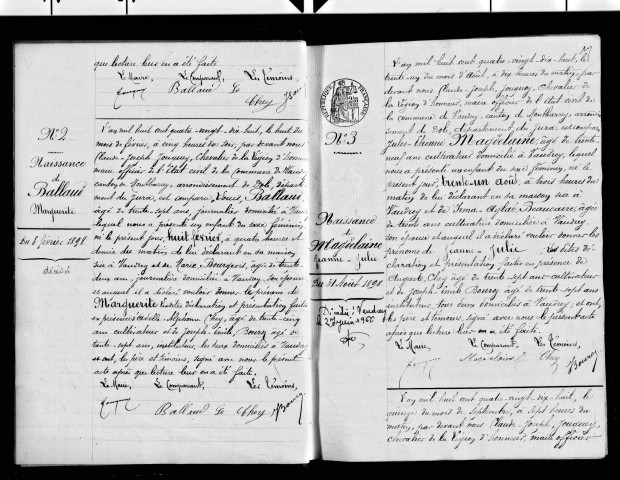 que lecture leur en a été faite.
Le Maire, Le Comparant, Les Témoins,
Ballaud Chey
N° 2
Naissance
de
Ballaud
Marguerite
Du 8 février 1898
L'an mil huit cent quatre-vingt-dix-huit, le huit du
mois de février, à cinq heures du soir, par devant nous
Claude-Joseph Jouguey, Chevalier de la Légion d'honneur
maire officier de l'état civil de la commune de Vaudrey
canton de Montbarrey, arrondissement de Dole, département
du Jura, est comparu Ballaud
âgé de trente-sept ans, journalier domicilié à Vaudrey
lequel nous a présenté un enfant du sexe féminin,
né le présent jour, huit février, à quatre heures et
demie du matin de lui déclarant en sa maison
sise à Vaudrey et de Marie Bourgeois, âgée de trente
deux ans, journalière domiciliée à Vaudrey, son épouse
et auquel il a déclaré vouloir donner le prénom de
Marguerite. Lesdites déclaration et présentation faites
en présence Alphonse Chey, âgé de trente-cinq
ans cultivateur et de Joseph Emile Bourg âgé de
trente-sept ans, instituteur, les deux domiciliés à Vaudrey
et ont, les père et témoins, signé avec nous le présent
acte après que lecture leur en a été faite.
Le Maire, Le Comparant, Les Témoins,
Ballaud Chey Bourg
RÉPUBLIQUE FRANÇAISE
N° 3
Naissance
de
Magdelaine
Jeanne-Julie
Du 31 Août 1898
L'an mil huit cent quatre-vingt-dix-huit, le
trente-un du mois d'Août, à dix heures du matin, par
devant nous Claude-Joseph Jouguey, Chevalier de
la Légion d'honneur, maire officier de l'état civil de
la commune de Vaudrey, canton de Montbarrey, arrondissement
de Dole, département du Jura, est comparu
Jules Magdelaine, âgé de trente-
neuf ans cultivateur domicilié à Vaudrey, lequel
nous a présenté un enfant du sexe féminin, né
le présent jour, trente-un août, à trois heures du
matin, de lui déclarant en sa maison sise à
Vaudrey et de Beaucaire, âgée
de trente ans cultivateur domiciliée à Vaudrey,
son épouse et auquel il a déclaré vouloir donner les
prénoms de Jeanne Julie. Les dites
déclaration et présentation faites en présence de
Chey âgé de trente-sept ans cultivateur
et de Joseph Emile Bourg âgé de trente-sept ans
instituteur tous deux domiciliés à Vaudrey, et ont,
les père et témoins, signé avec nous le présent acte
après que lecture leur en a été faite.
Le Maire, Le Comparant, Les Témoins,
Magdelaine J. Chey Bourg
L'an mil huit cent quatre-vingt-dix-huit, le
quinze du mois de septembre, à sept heures du
matin, par devant nous Claude-Joseph Jouguey,
chevalier de la Légion d'honneur, maire officier